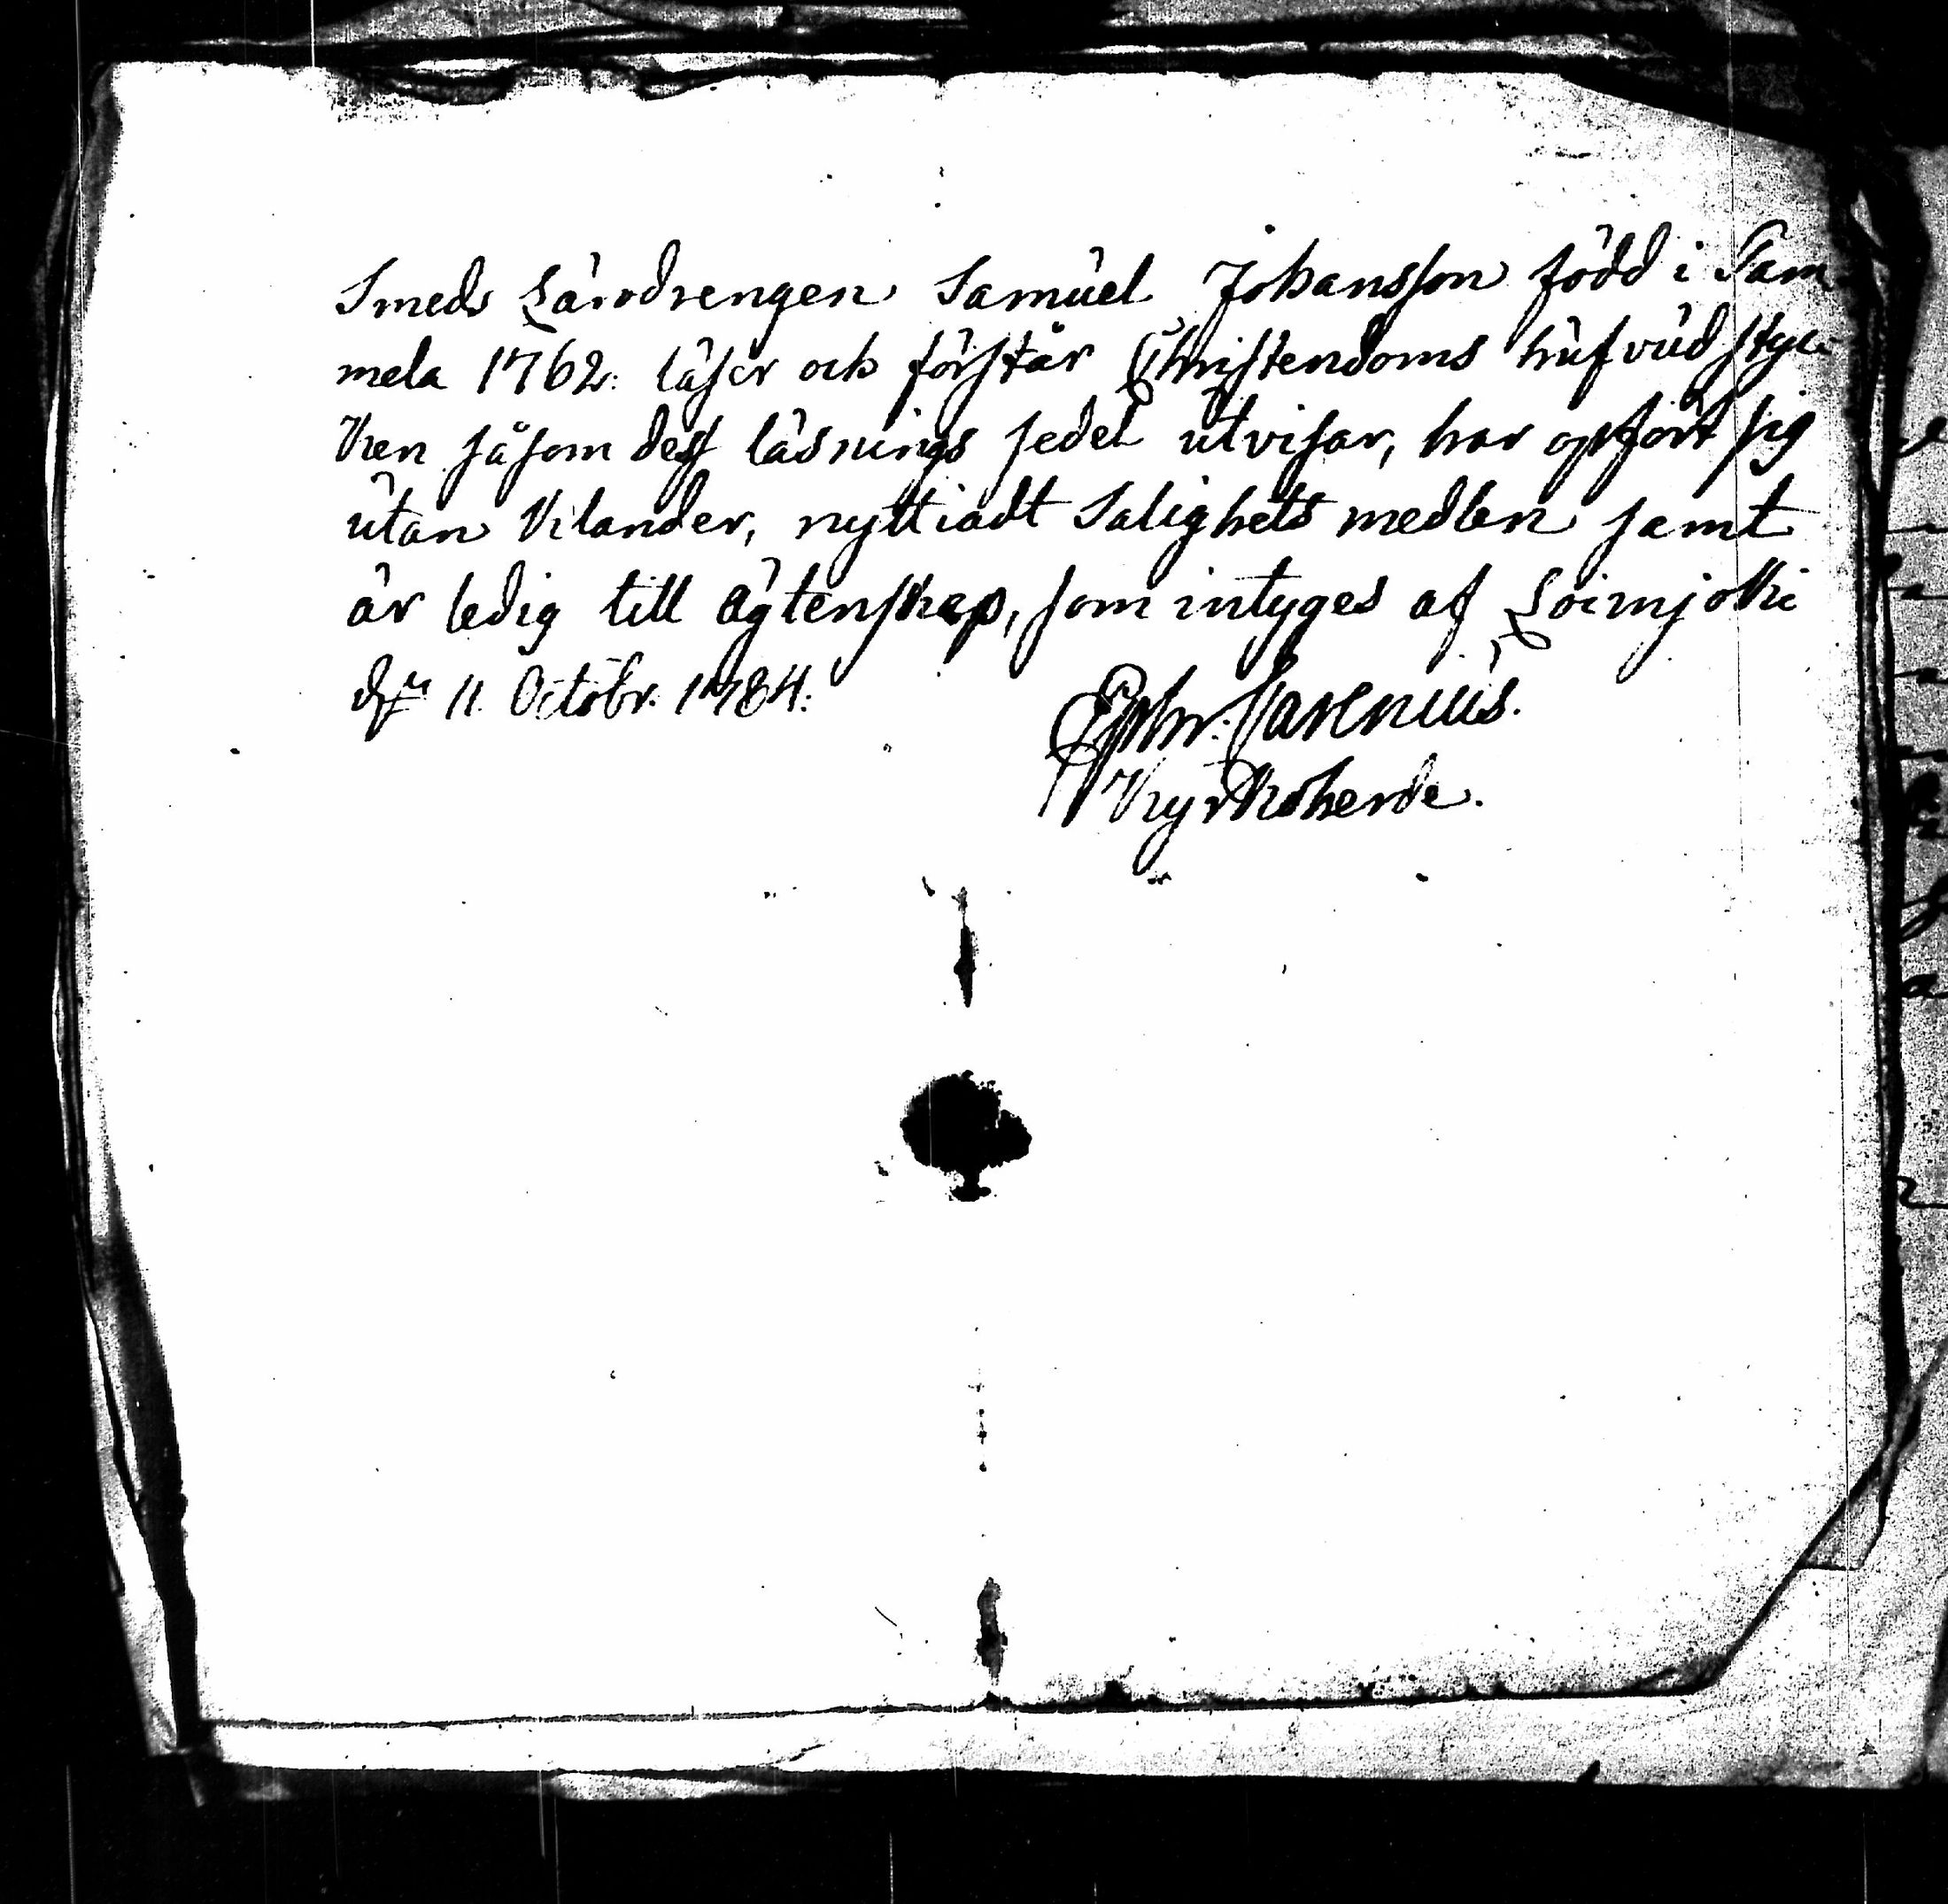 Smeds Lärodrengen Samuel Johansson född i Tam-
mela 1762: läser och förstår Christendoms hufvudstyc-
ken såsom dess läsnings sedel utvisar, har opfört sig
utan klander, nyttiadt Salighets medlen samt
är ledig till ägtenskap, som intyges af Loimjoki
d. 11. Octobr. 1784:
Ephr. Varenius.
Kyrkoherde.